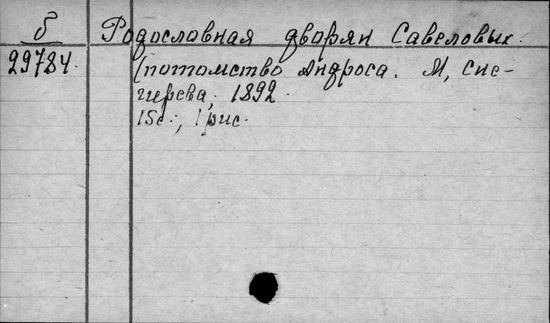 б Родословная дворян Савеловых
29784. (потомство Андроса. М, Сне-
гирева, 1892.
15с., 1 рис.